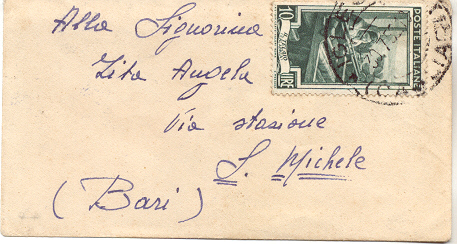 Alla Signorina
Zita Angela
Via stazione
S. Michele
(Bari)
10
LIRE
POSTE ITALIANE